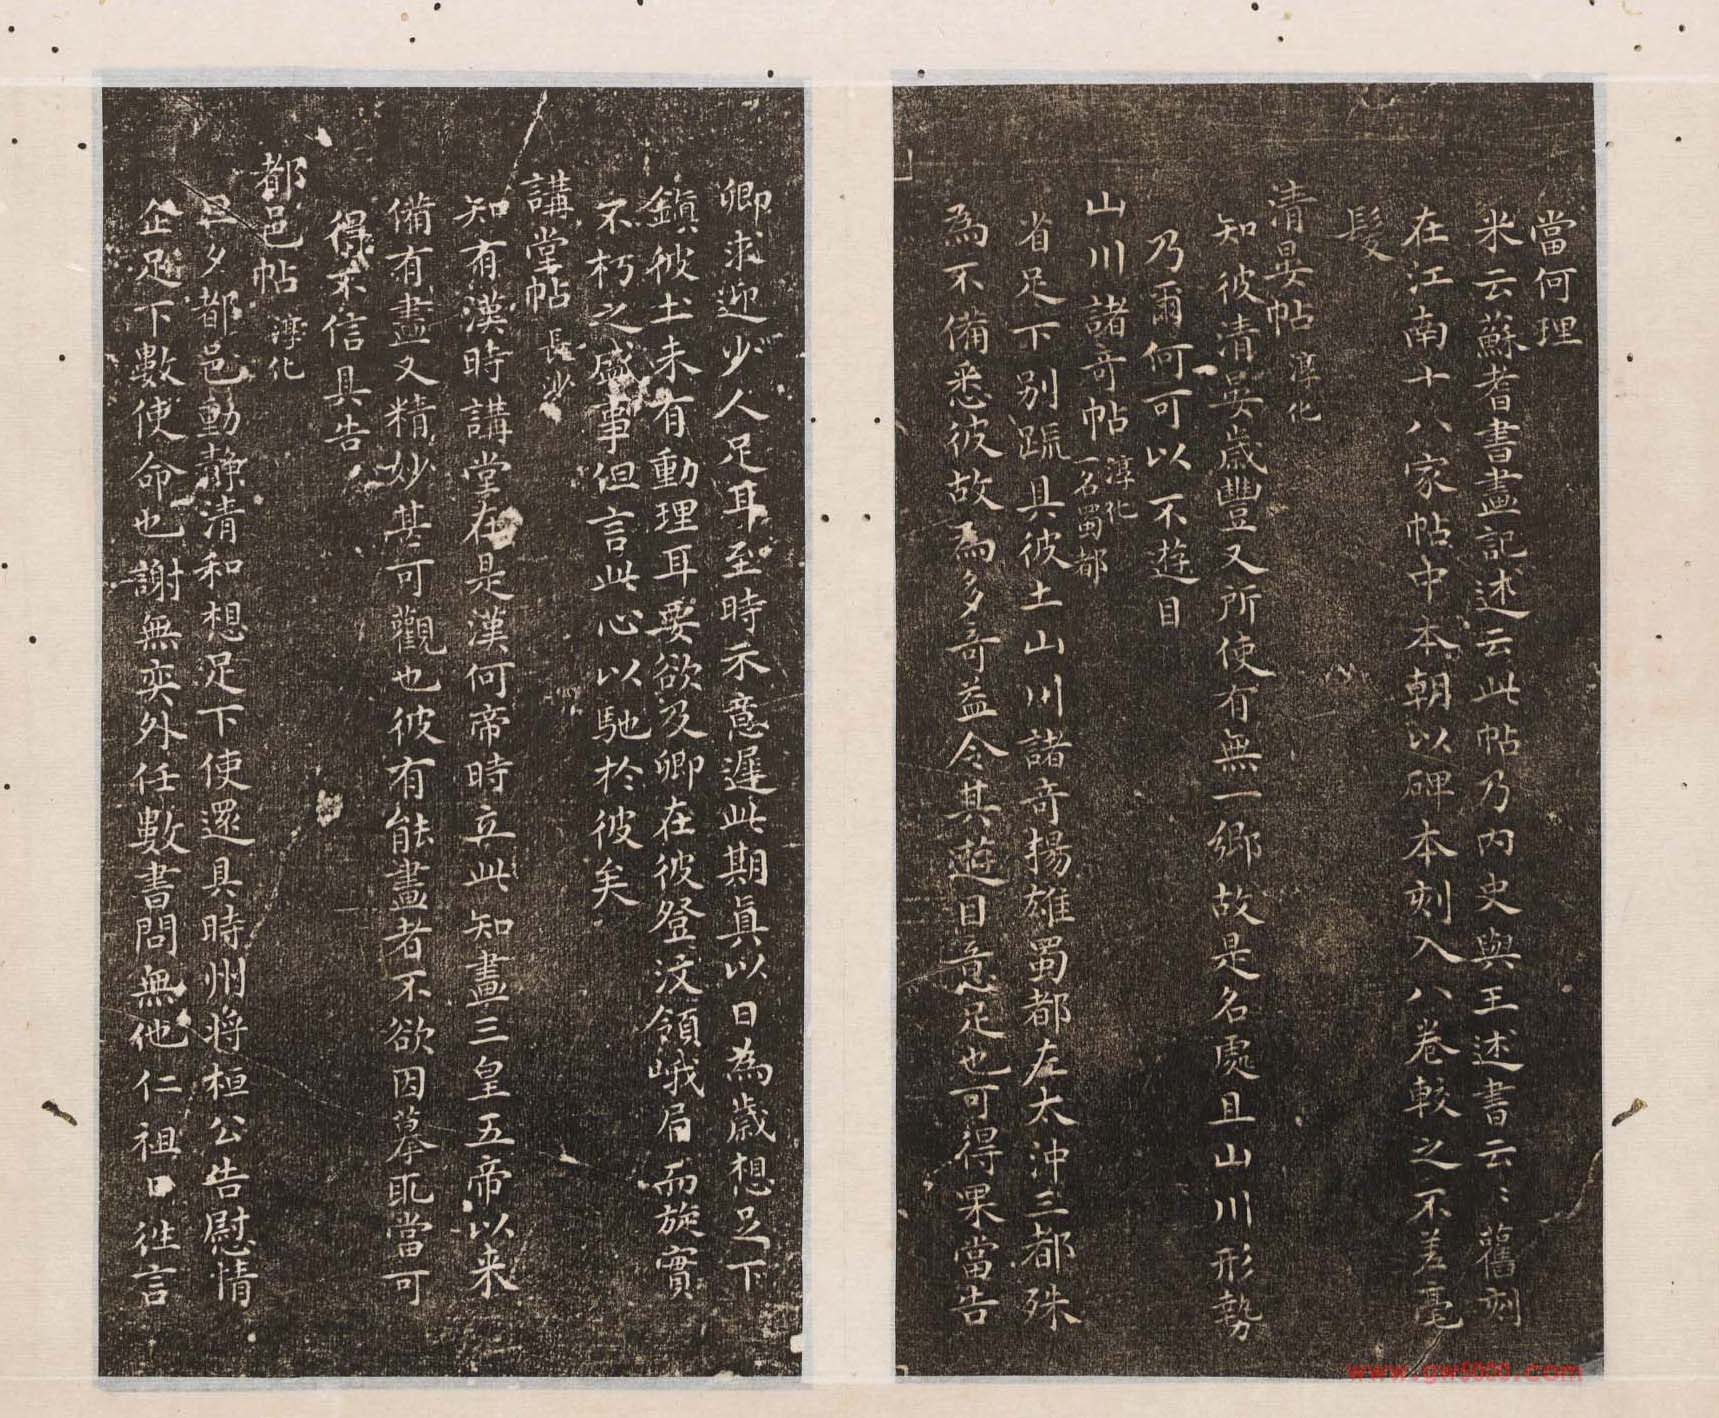 當何理
米云蘇耆書畫記述云此帖乃內史與王述書云〻舊刻
在江南十八家帖中本朝以碑本刻入八卷較之不差毫
髮
清晏帖 淳化
知彼清晏歲豐又所使有無一鄉故是名處且山川形勢
乃爾何可以不遊目
山川諸奇帖 淳化 一名蜀都
省足下別疏具彼土山川諸奇揚雄蜀都左太沖三都殊
為不備悉彼故為多奇益令其遊目意足也可得果當告
卿求迎少人足耳至時示意遲此期真以日為歲想足下
鎮彼土未有動理耳要欲及卿在彼登汶領峨眉而旋實
不朽之盛事但言此心以馳於彼矣
講堂帖 長沙
知有漢時講堂在是漢何帝時立此知畫三皇五帝以来
備有畫又精妙甚可觀也彼有能畫者不欲因摹取當可
得不信具告
都邑帖 淳化
旦夕都邑動静清和想足下使還具時州将桓公告慰情
企足下數使命也謝無奕外任數書問無他仁祖日徃言
www.gw5000.com